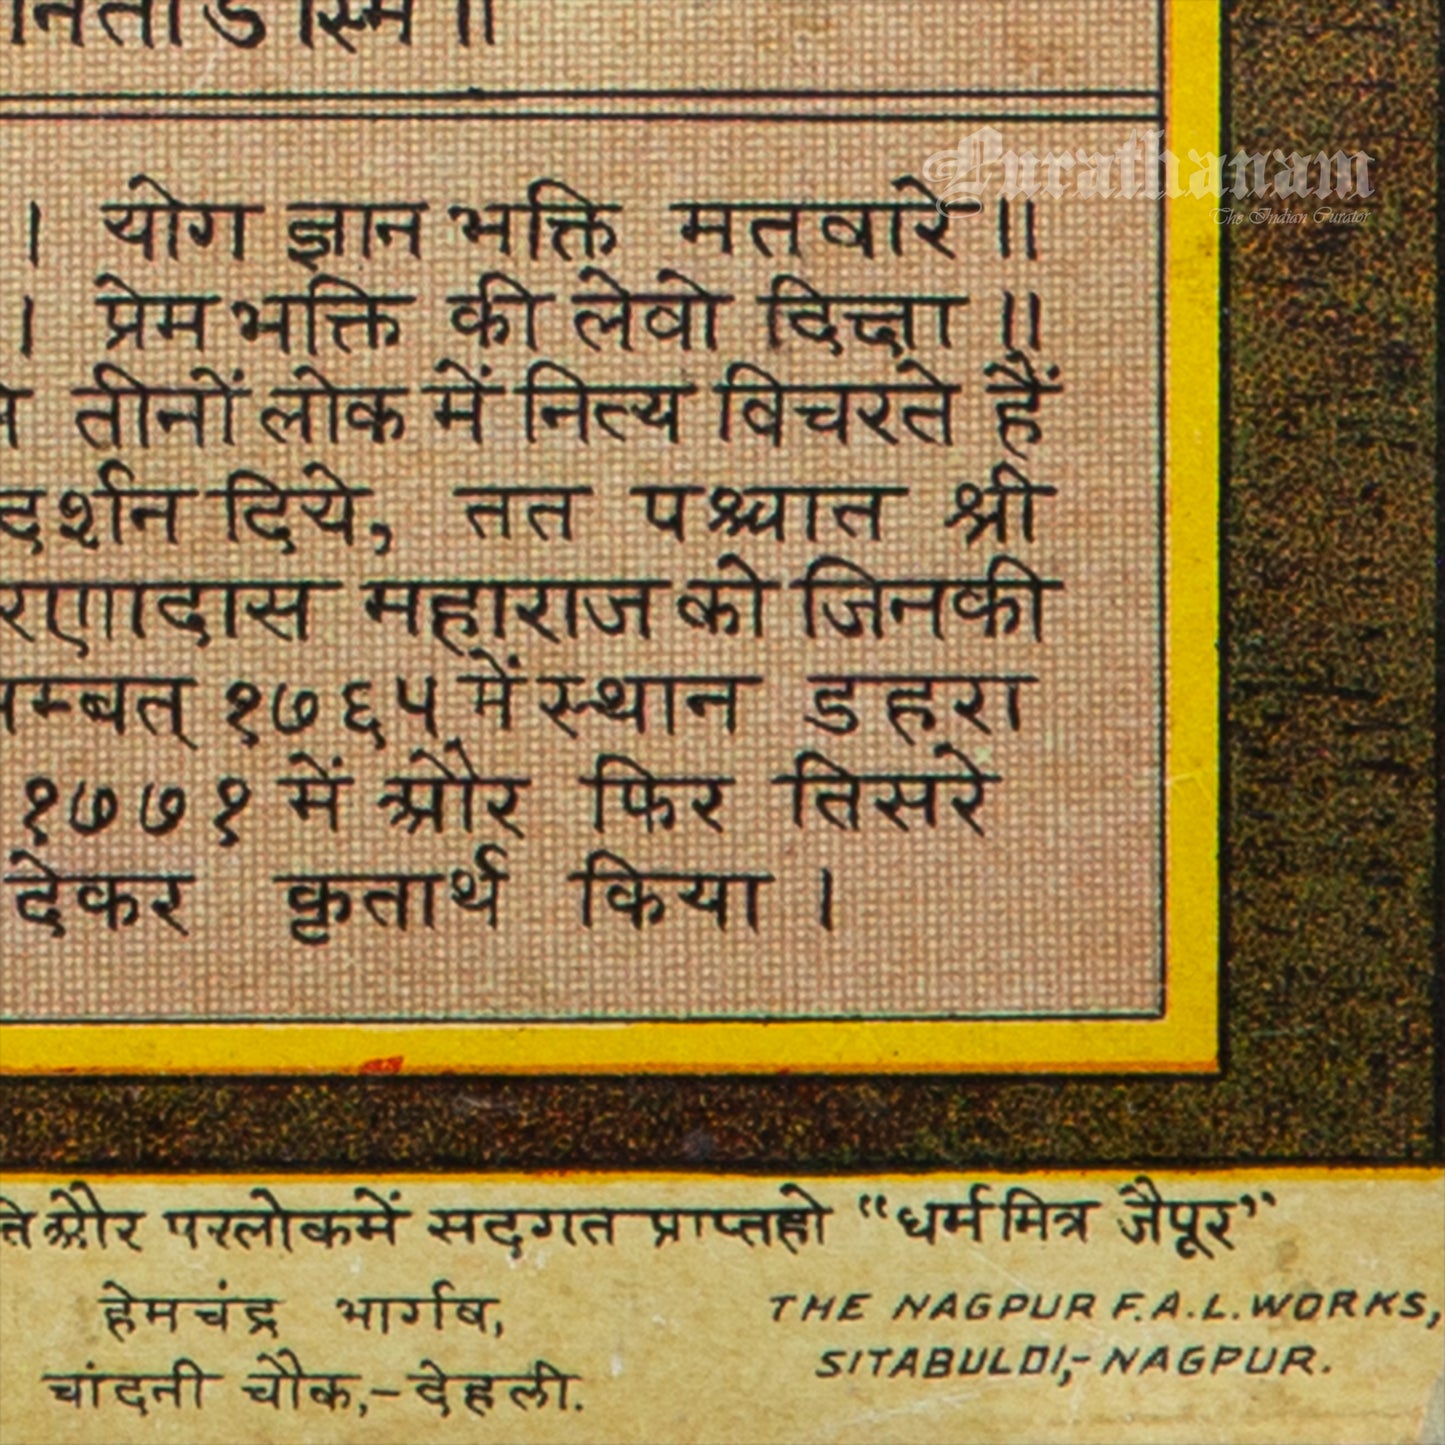 नितोऽस्मि ॥
Curathanam
The Indian Curator
। योग ज्ञान भक्ति मतवारे ॥
। प्रेम भक्ति की लेवो दिक्षा ॥
तीनों लोक में नित्य विचरते हैं
दर्शन दिये, तत पश्चात श्री
रणदास महाराज को जिनकी
म्बत् १७६५ में स्थान डहरा
१७७१ में और फिर तिसरे
देकर कृतार्थ किया ।
और परलोकमें सदगत प्राप्तहो “धर्ममित्र जैपूर”
हेमचंद्र भार्गव,
चांदनी चौक,-देहली.
THE NAGPUR F.A.L. WORKS,
SITABULDI,- NAGPUR.